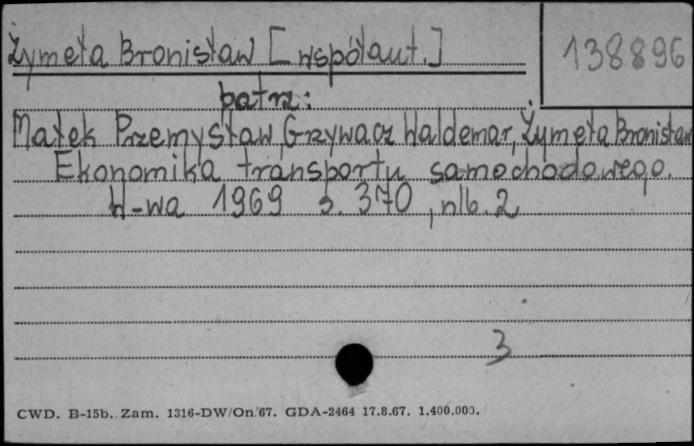 Żymeła Bronisław [współaut.]
138896
patrz:
Małek Przemysław, Grzywacz Waldemar, Żymeła Bronisław
Ekonomika transportu samochodowego.
W-wa 1969 s. 370, nlb. 2
3
CWD. B-15b. Zam. 1316-DW/On/67. GDA-2464 17.8.67. 1.400.000.